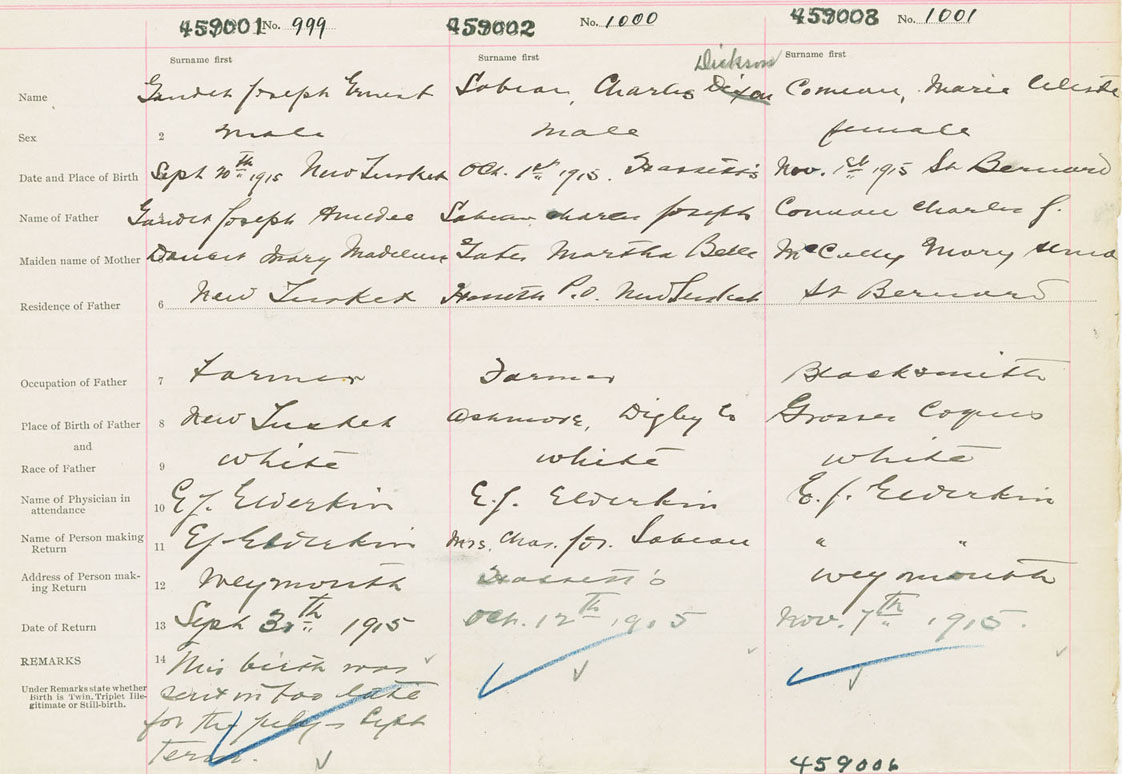 459001 No. 999 459002 No. 1000 459003 No. 1001
Surname first Surname first Dickson Surname first
Name Gaudet Joseph Ernest Sabean, Charles Dixon Comeau, Marie Celeste
Sex 2 male male female
Date and Place of Birth Sept 20th 1915 New Tusket Oct. 1st 1915. Hassett's Nov. 1st 1915 St Bernard
Name of Father Gaudet Joseph Amedee Sabean Charles Joseph Comeau Charles J.
Maiden name of Mother Doucet Mary Madeleine Gates Martha Belle McCully Mary
Residence of Father 6 New Tusket Hassetts P.O. New Tusket St Bernard
Occupation of Father 7 Farmer Farmer Blacksmith
Place of Birth of Father 8 New Tusket Ashmore, Digby Co Grosses Coques
and
Race of Father 9 white white white
Name of Physician in attendance 10 E J. Elderkin E. J. Elderkin E. J. Elderkin
Name of Person making Return 11 E J Elderkin Mrs. Chas. Jos. Sabean " "
Address of Person making Return 12 Weymouth Hassett's Weymouth
Date of Return 13 Sept 30th 1915 Oct. 12th 1915 Nov. 7th 1915.
REMARKS 14 This birth was
Under Remarks state whether Birth is Twin, Triplet Illegitimate or Still-birth.
sent in too late
for the July - Sept
term.
459006